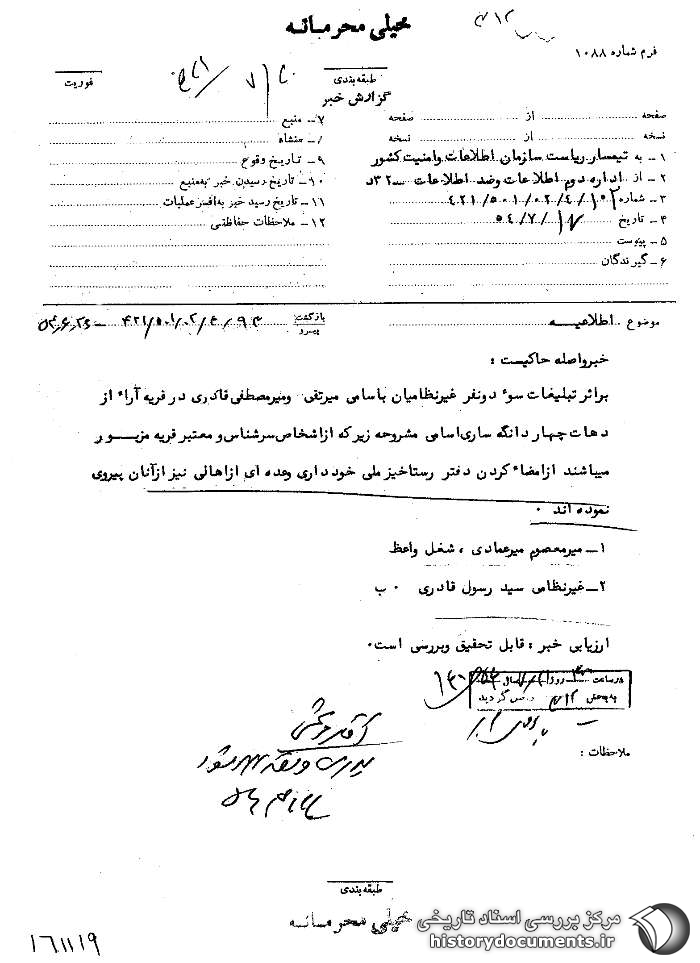 خیلی محرمانه
۳۱۲
فرم شماره ۱۰۸۸
طبقه‌بندی
فوریت
گزارش خبر
صفحه از صفحه
نسخه از نسخه
۱ـ به تیمسار ریاست سازمان اطلاعات وامنیت کشور
۲ـ از اداره دوم اطلاعات وضد اطلاعات ـ ۳۲۰د
۳ـ شماره ۴۲۱/۵۰۱/۰۲/۴/۱۰۲
۴ـ تاریخ ۵۴/۷/
۵ـ پیوست
۶ـ گیرندگان
۷ـ منبع
۸ـ منشاء
۹ـ تاریخ وقوع
۱۰ـ تاریخ رسیدن خبر به‌منبع
۱۱ـ تاریخ رسید خبر به‌افسر عملیات
۱۲ـ ملاحظات حفاظتی
موضوع اطلاعیـــه
بازگشت
پیرو
۴۲۱/۵۰۱/۰۲/۴/۹۳
خبرواصله حاکیست :
براثر تبلیغات سوء دونفر غیرنظامیان باسامی میرتقی ومیرمصطفی قادری در قریه آراء از
دهات چهار دانگه ساری اسامی مشروحه زیر که ازاشخاص سرشناس و معتبر قریه مزبـــور
میباشند ازامضاء کردن دفتر رستاخیز ملی خودداری وعده ای ازاهالی نیز ازآنان پیروی
نموده اند ۰
۱ـ میرمعصوم میرعمادی ، شغل واعظ
۲ـ غیرنظامی سید رسول قادری ۰ ب
ارزیابی خبر : قابل تحقیق وبررسی است۰
درساعت روز سال
به‌بخش ۳۱۲ گردید
ملاحظات :
طبقه‌بندی
خیلی محرمانه
۱۶۱۱۱۹
مرکز بررسی اسناد تاریخی
historydocuments.ir